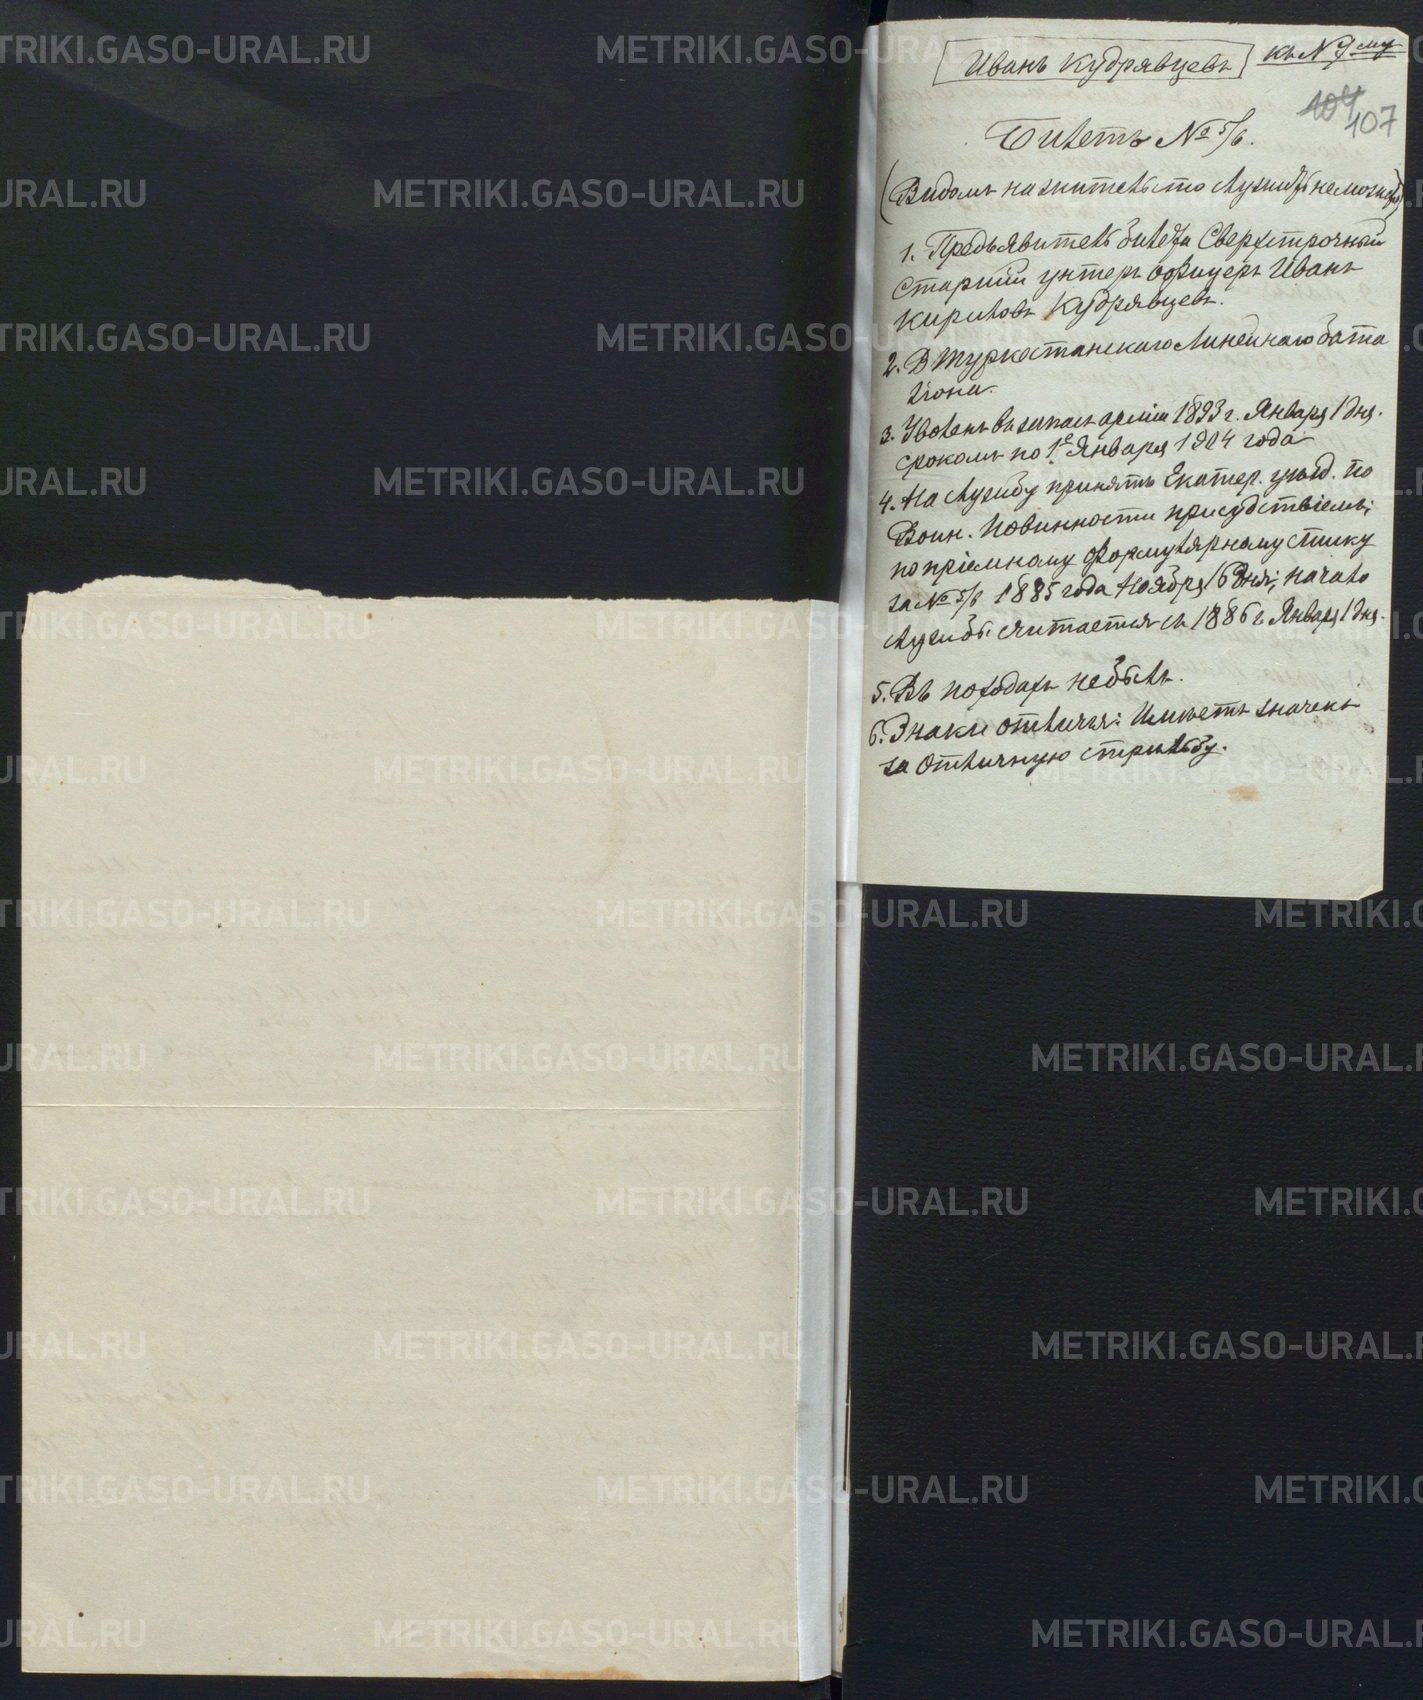 Иванъ Кудрявцевъ къ № 9му
104
107
Билетъ № 5/6.
(Видомъ на жительство служить не можетъ)
1. Предъявитель билета Сверхсрочный
старшій унтеръ офицеръ Иванъ
Кириловъ Кудрявцевъ.
2. В Туркестанскаго Линейнаго бата
ліона.
3. Уволенъ въ запасъ арміи 1893 г. Января 1 дня.
срокомъ по 1е Января 1904 года
4. На службу принятъ Екатер. уѣзд. по
Воин. Повинности присудствіемъ;
по пріемному формулярному списку
за № 5/6 1885 года Ноября 16 дня; начало
службы считается съ 1886 г. Января 1 дня.
5. Въ походахъ не былъ.
6. Знаки отличія: Имѣетъ значекъ
за отличную стрѣльбу.
METRIKI.GASO-URAL.RU